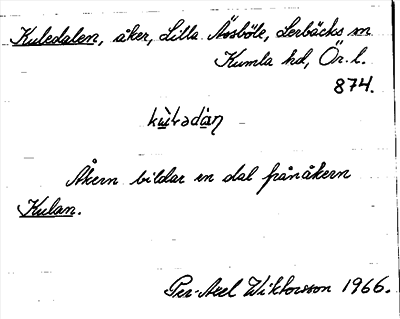 Kuledalen, åker, Lilla Åsböle, Lerbäcks sn
Kumla hd, Ör. l.
874.
Åkern bildar en dal från åkern
Kulan.
Per-Axel Wiktorsson 1966.